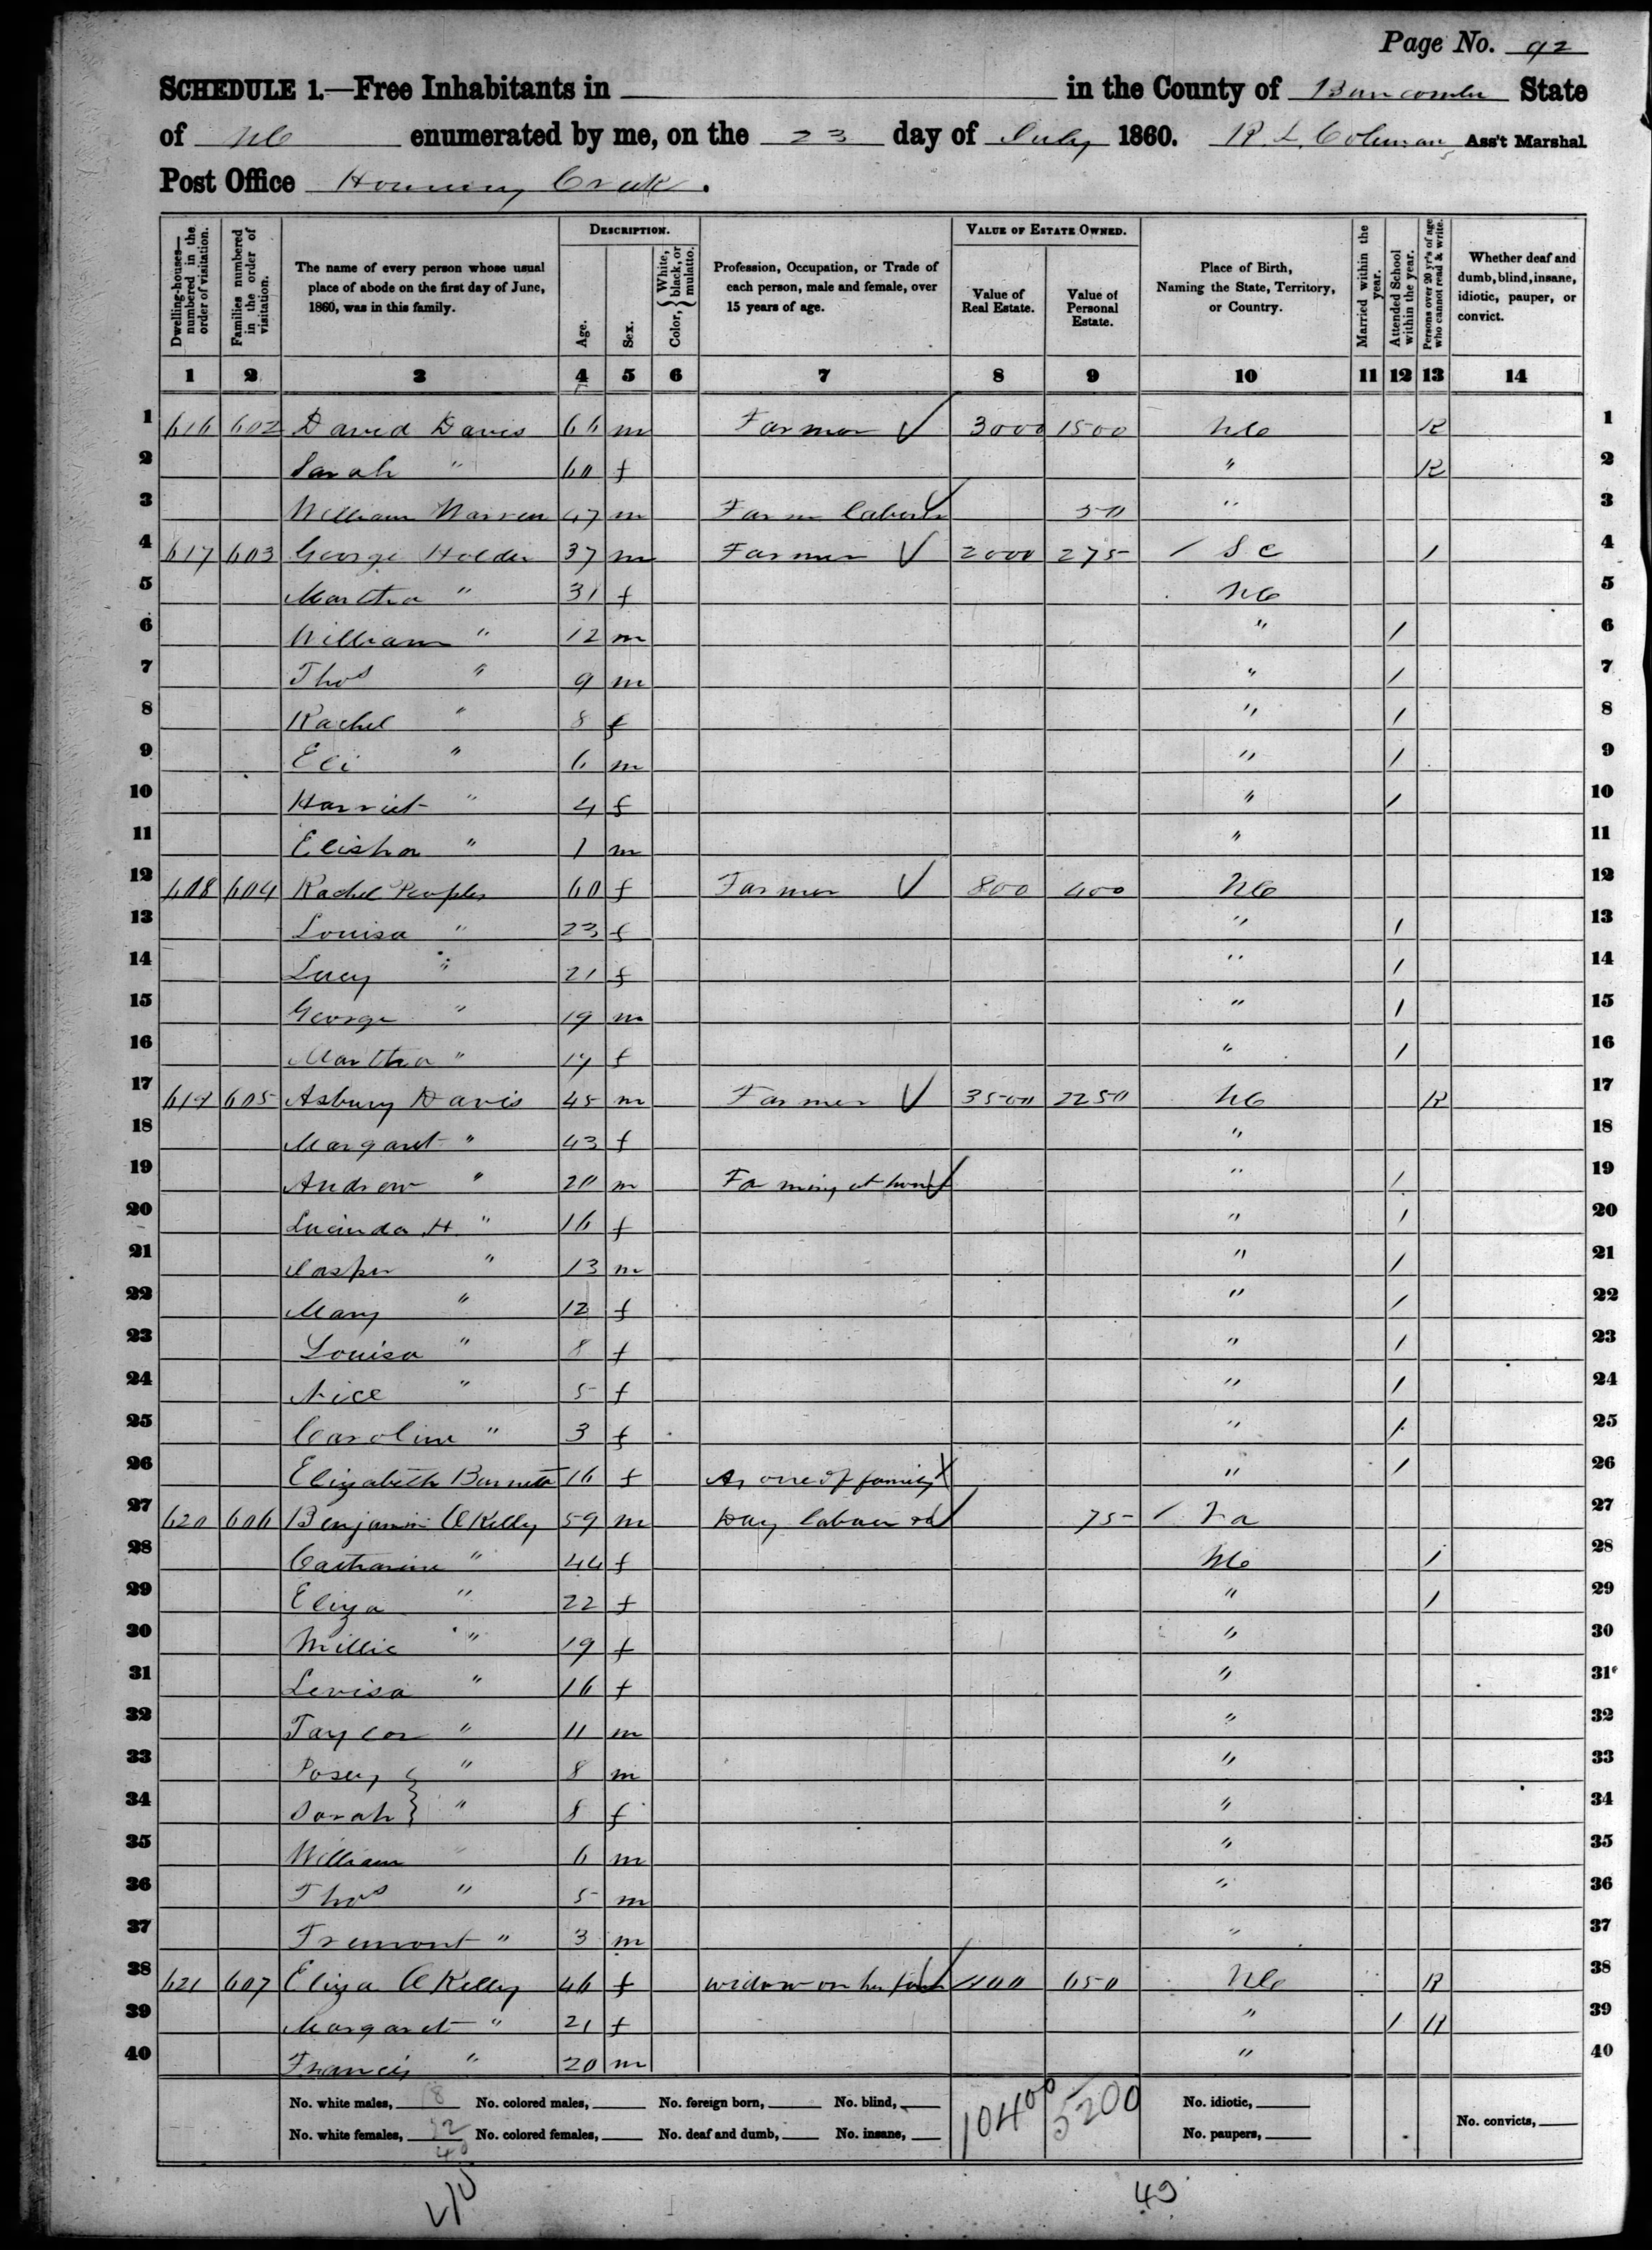 Page No. 92
SCHEDULE 1.—Free Inhabitants in in the County of Buncombe State
of NC enumerated by me, on the 23 day of July 1860. R. L. Coleman Ass't Marshal
Post Office Hominy Creek.
Dwelling-houses—numbered in the order of visitation.
Families numbered in the order of visitation.
The name of every person whose usual place of abode on the first day of June, 1860, was in this family.
DESCRIPTION.
Age.
Sex.
Color, { White, black, or mulatto.
Profession, Occupation, or Trade of each person, male and female, over 15 years of age.
VALUE OF ESTATE OWNED.
Value of Real Estate.
Value of Personal Estate.
Place of Birth, Naming the State, Territory, or Country.
Married within the year.
Attended School within the year.
Persons over 20 yr's of age who cannot read & write.
Whether deaf and dumb, blind, insane, idiotic, pauper, or convict.
1 2 3 4 5 6 7 8 9 10 11 12 13 14
1 616 602 David Davis 66 m Farmer √ 3000 1500 NC R 1
2 Sarah " 60 f " R 2
3 William Warren 47 m Farm laborer √ 50 " 3
4 617 603 George Holder 37 m Farmer √ 2000 275 / S C / 4
5 Martha " 31 f NC 5
6 William " 12 m " / 6
7 Thos " 9 m " / 7
8 Rachel " 8 f " / 8
9 Eli " 6 m " / 9
10 Harriet " 4 f " / 10
11 Elisha " 1 m " 11
12 608 604 Rachel Peoples 60 f Farmer √ 800 400 NC 12
13 Louisa " 23 f " / 13
14 Lucy " 21 f " / 14
15 George " 19 m " / 15
16 Martha " 17 f " / 16
17 619 605 Asbury Davis 45 m Farmer √ 3500 2250 NC R 17
18 Margaret " 43 f " 18
19 Andrew " 20 m Farming at home √ " / 19
20 Lucinda H. " 16 f " / 20
21 Casper " 13 m " / 21
22 Mary " 12 f " / 22
23 Louisa " 8 f " / 23
24 Nice " 5 f " / 24
25 Caroline " 3 f " / 25
26 Elizabeth Barnett 16 f As one of family X " / 26
27 620 606 Benjamin OKelly 59 m Day labourer √ 75 / Va 27
28 Catharine " 44 f NC / 28
29 Eliza " 22 f " / 29
30 Millie " 19 f " 30
31 Levisa " 16 f " 31
32 Taylor " 11 m " 32
33 Posey } " 8 m " 33
34 Sarah } " 8 f " 34
35 William " 6 m " 35
36 Thos " 5 m " 36
37 Fremont " 3 m " 37
38 621 607 Eliza OKelly 46 f widow on her farm √ 650 NC R 38
39 Margaret " 21 f " / R 39
40 Francis " 20 m " 40
No. white males, 18 No. colored males, No. foreign born, No. blind, 10400 5200 No. idiotic,
No. white females, 22 No. colored females, No. deaf and dumb, No. insane, No. paupers, No. convicts,
40